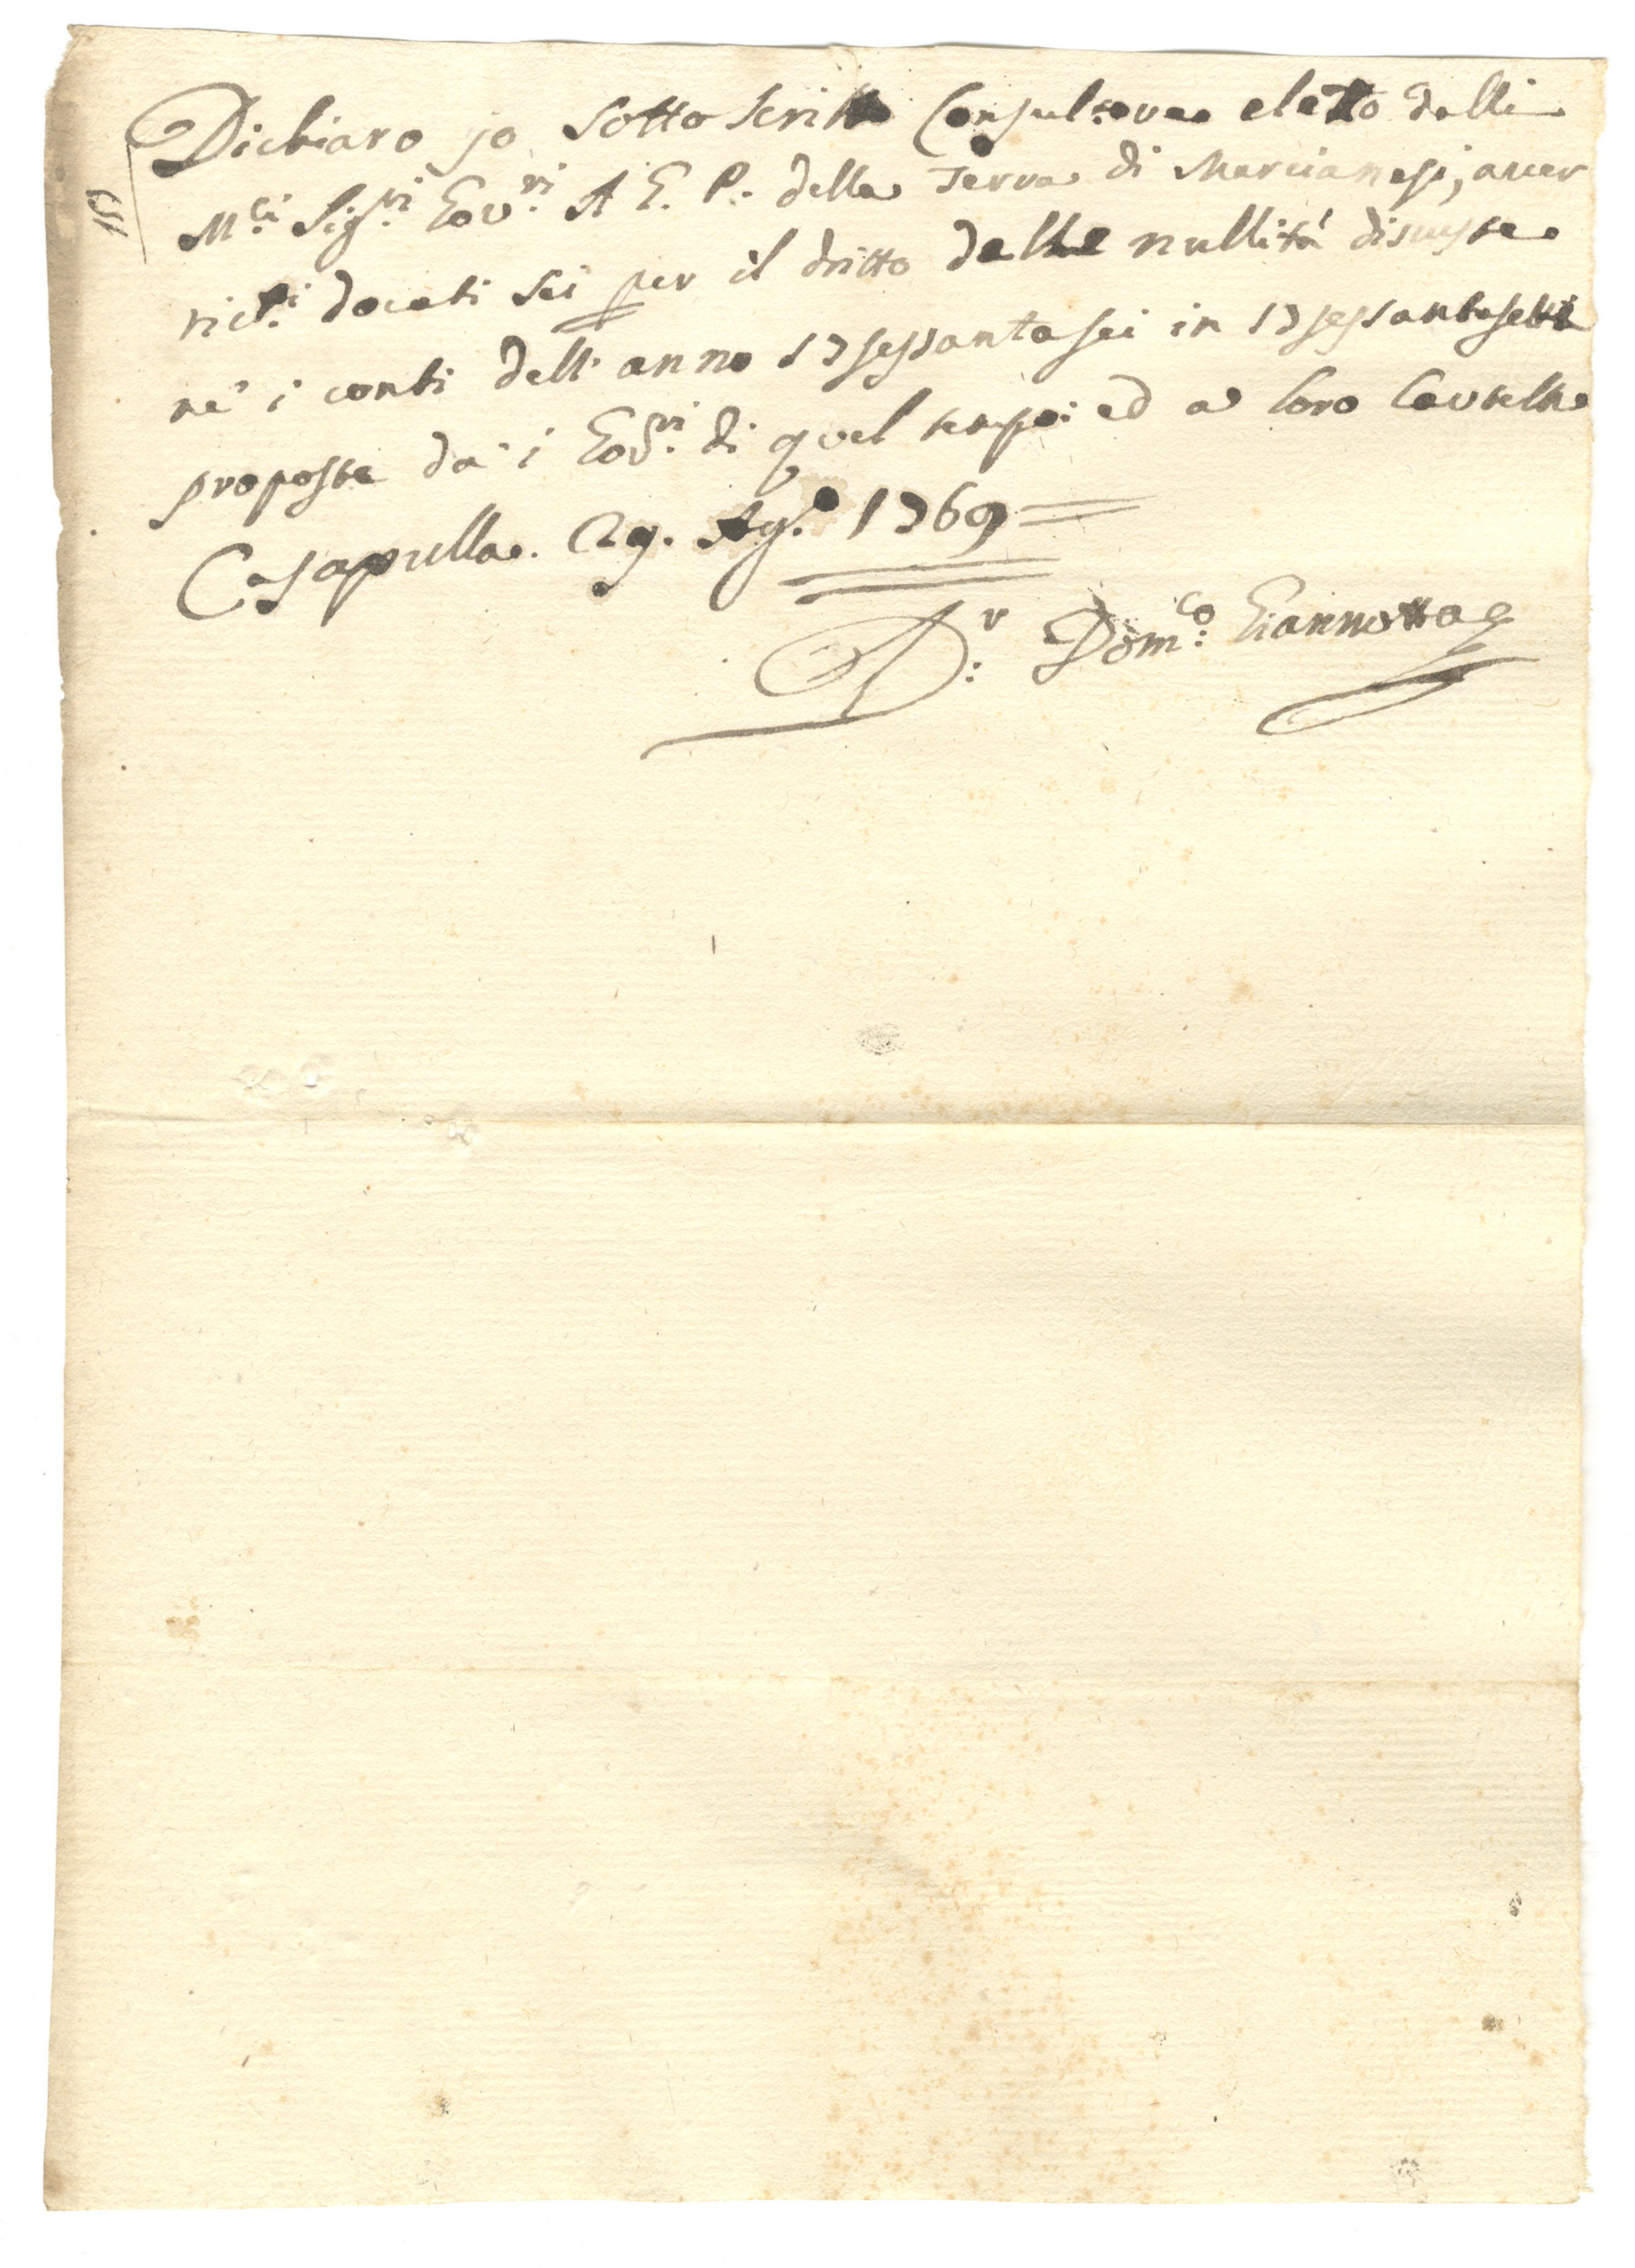 Dichiaro jo Sotto Scritto Consultore eletto dalli
M.ci Sig.ri Gov.ri A. G. P. della Terra di Marcianesi, aver
ric.ti docati sei per il dritto delle nullità discusse
ne' i conti dell'anno 17sessantasei in 17sessantasette
proposte da' i Gov.ri di quel tempo: ed a loro Cautela
Casapulla. 29. Ag.o 1769
D.r Dom.co Giannotta